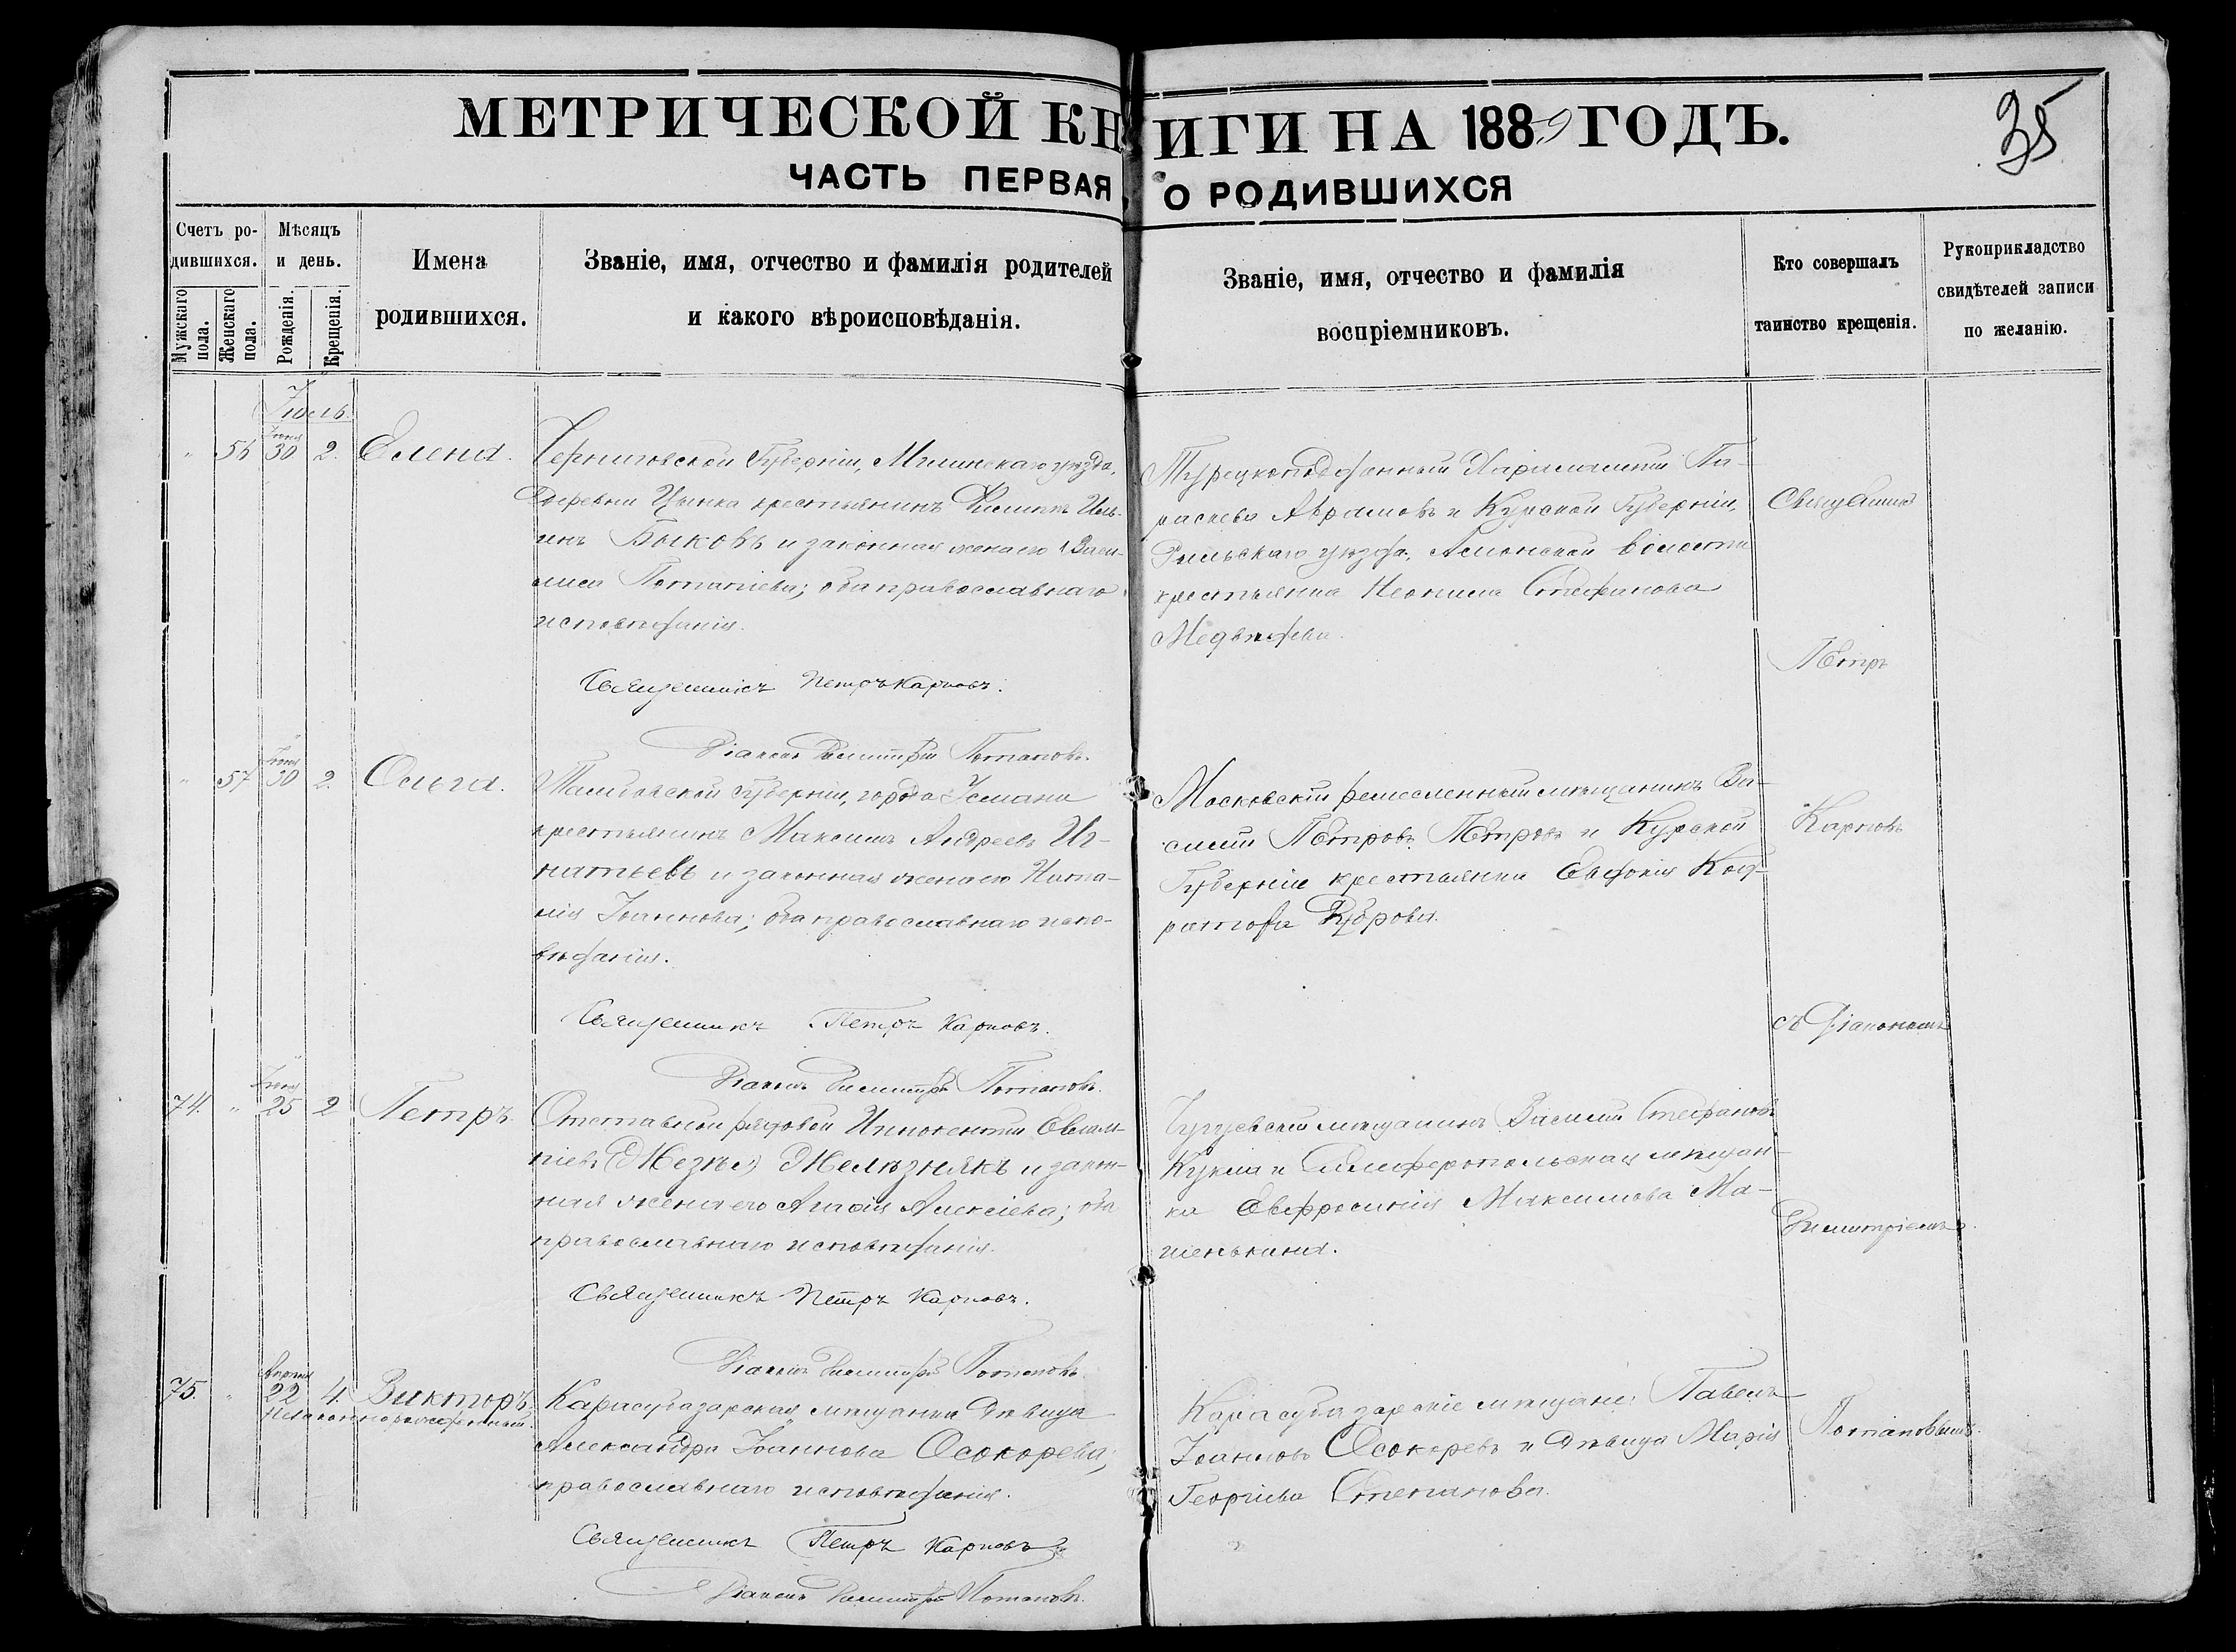 МЕТРИЧЕСКОЙ КНИГИ НА 1889 ГОДЪ.
35
ЧАСТЬ ПЕРВАЯ, О РОДИВШИХСЯ
Счетъ родившихся.
Мужскаго пола.
Женскаго пола.
Мѣсяцъ и день.
Рожденія.
Крещенія.
Имена родившихся.
Званіе, имя, отчество и фамилія родителей
и какого вѣроисповѣданія.
Званіе, имя, отчество и фамилія
воспріемниковъ.
Кто совершалъ
таинство крещенія.
Рукоприкладство
свидѣтелей записи
по желанію.
Іюль.
" 56 Іюня 30 2. Елена.
Черниговской Губерніи, Мглинскаго уѣзда,
деревни крестьянинъ Филиппъ Иль-
инъ Быковъ и законная жена его Васи-
лиса Потапіева; оба православнаго
исповѣданія.
Священникъ Петръ Карповъ.
Діаконъ Димитрій Потаповъ.
Турецкоподданный Харлампій Па-
раскева Аврамовъ и Курской Губерніи,
Рыльскаго уѣзда, волости
крестьянка Неонила Стефанова
Медвѣдева.
" 57 Іюня 30 2. Ольга.
Тамбовской губерніи, города Усмани
крестьянинъ Максимъ Андреевъ Иг-
натьевъ и законная жена его Ната-
лія Іоаннова; оба православнаго испо-
вѣданія.
Священникъ Петръ Карповъ.
Діаконъ Димитрій Потаповъ.
Московскій ремесленный мѣщанинъ Ва-
силій Петровъ Петровъ и Курской
Губерніи крестьянка Евдокія Код-
ратова
74. " Іюня 25 2 Петръ.
Отставной рядовой Иннокентій Евлам-
піевъ Желѣзнякъ и закон-
ная жена его Агафія Алексіева; оба
православнаго исповѣданія.
Священникъ Петръ Карповъ.
Діаконъ Димитрій Потаповъ.
Чугуевскій мѣщанинъ Василій Стефановъ
Кукша и Симферопольская мѣщан-
ка Евфросинія Максимова Ма-
75. " Апрѣля 22 4. Викторъ.
Незаконнорожденный.
Карасубазарская мѣщанка дѣвица
Александра Іоаннова Осокорева;
православнаго исповѣданія.
Священникъ Петръ Карповъ
Діаконъ Димитрій Потаповъ.
Карасубазарскіе мѣщане: Павелъ
Іоанновъ Осокоревъ и дѣвица Марія
Георгіева Степанова.
Священникъ
Петръ
Карповъ
съ Діакономъ
Димитріемъ
Потаповымъ.